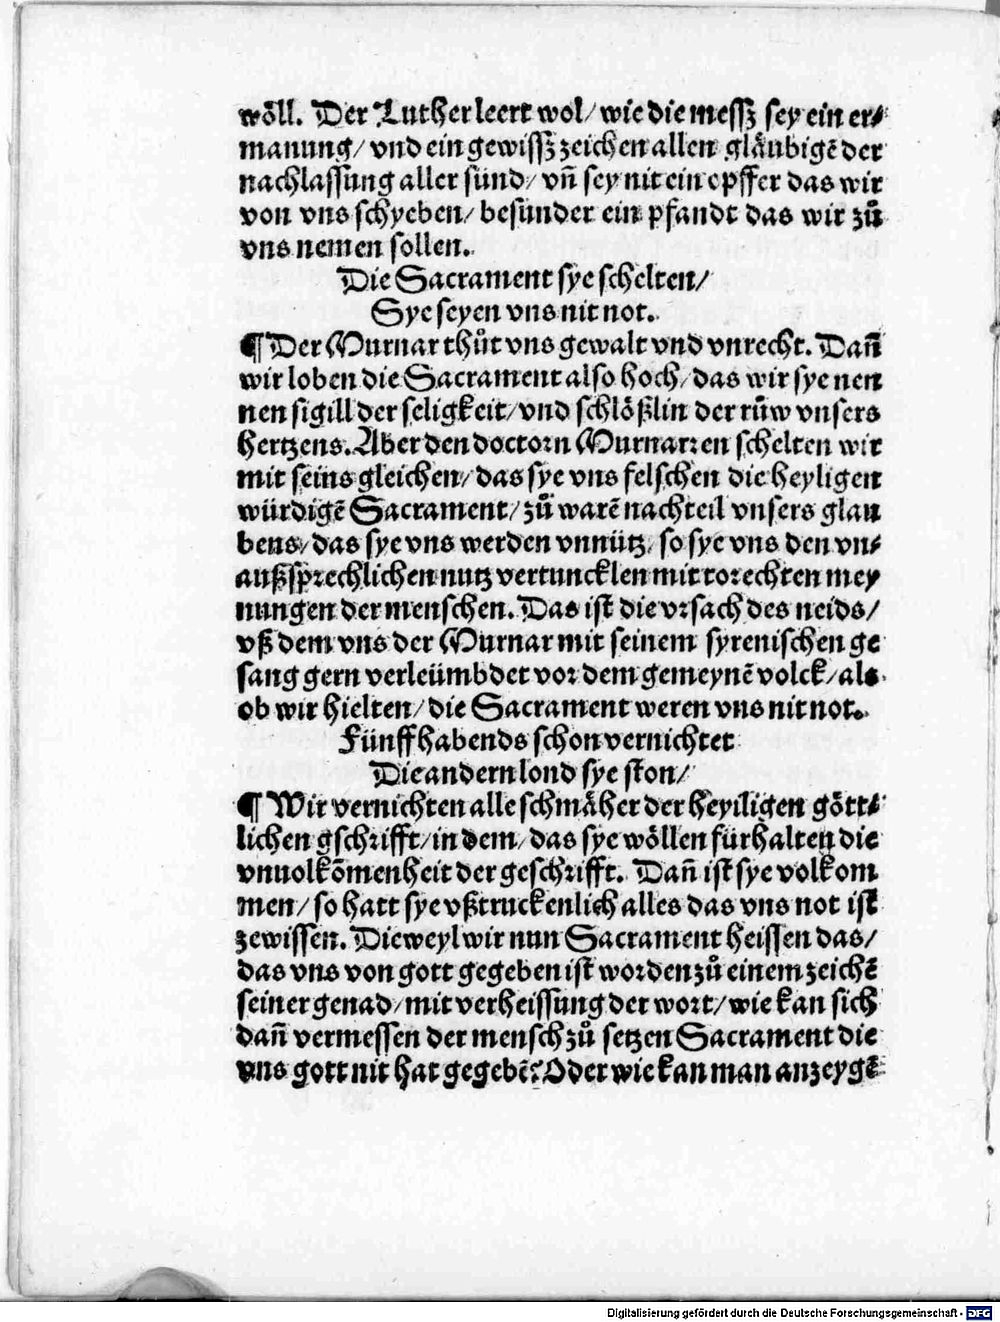 wöll. Der Luther leert wol/ wie die messz sey ein er⸗
manung/ vnd ein gewissz zeichen allen gläubigẽ der
nachlassung aller sünd/ vñ sey nit ein opffer das wir
von vns schyeben/ besunder ein pfandt das wir zů
vns nemen sollen.
Die Sacrament sye schelten/
Sye seyen vns nit not.
¶ Der Murnar thůt vns gewalt vnd vnrecht. Dañ
wir loben die Sacrament also hoch/ das wir sye nen
nen sigill der seligkeit/ vnd schlößlin der růw vnsers
hertzens. Aber den doctorn Murnarren schelten wir
mit seins gleichen/ das sye vns felschen die heyligen
würdigẽ Sacrament/ zů warẽ nachteil vnsers glau
bens/ das sye vns werden vnnütz/ so sye vns den vn⸗
außsprechlichen nutz vertuncklen mit torechten mey
nungen der menschen. Das ist die vrsach des neids/
vß dem vns der Murnar mit seinem syrenischen ge
sang gern verleümbdet vor dem gemeynẽ volck/ als
ob wir hielten/ die Sacrament weren vns nit not.
Fünff habends schon vernichtet
Die andern lond sye ston/
¶ Wir vernichten alle schmäher der heyiligen gött⸗
lichen gschrifft/ in dem/ das sye wöllen fürhalten die
vnuolkõmenheit der geschrifft. Dañ ist sye volkom
men/ so hatt sye vßtruckenlich alles das vns not ist
zewissen. Dieweyl wir nun Sacrament heissen das/
das vns von gott gegeben ist worden zů einem zeichẽ
seiner genad/ mit verheissung der wort/ wie kan sich
dañ vermessen der mensch zů setzen Sacrament die
vns gott nit hat gegebẽ? Oder wie kan man anzeygẽ
Digitalisierung gefördert durch die Deutsche Forschungsgemeinschaft - DFG